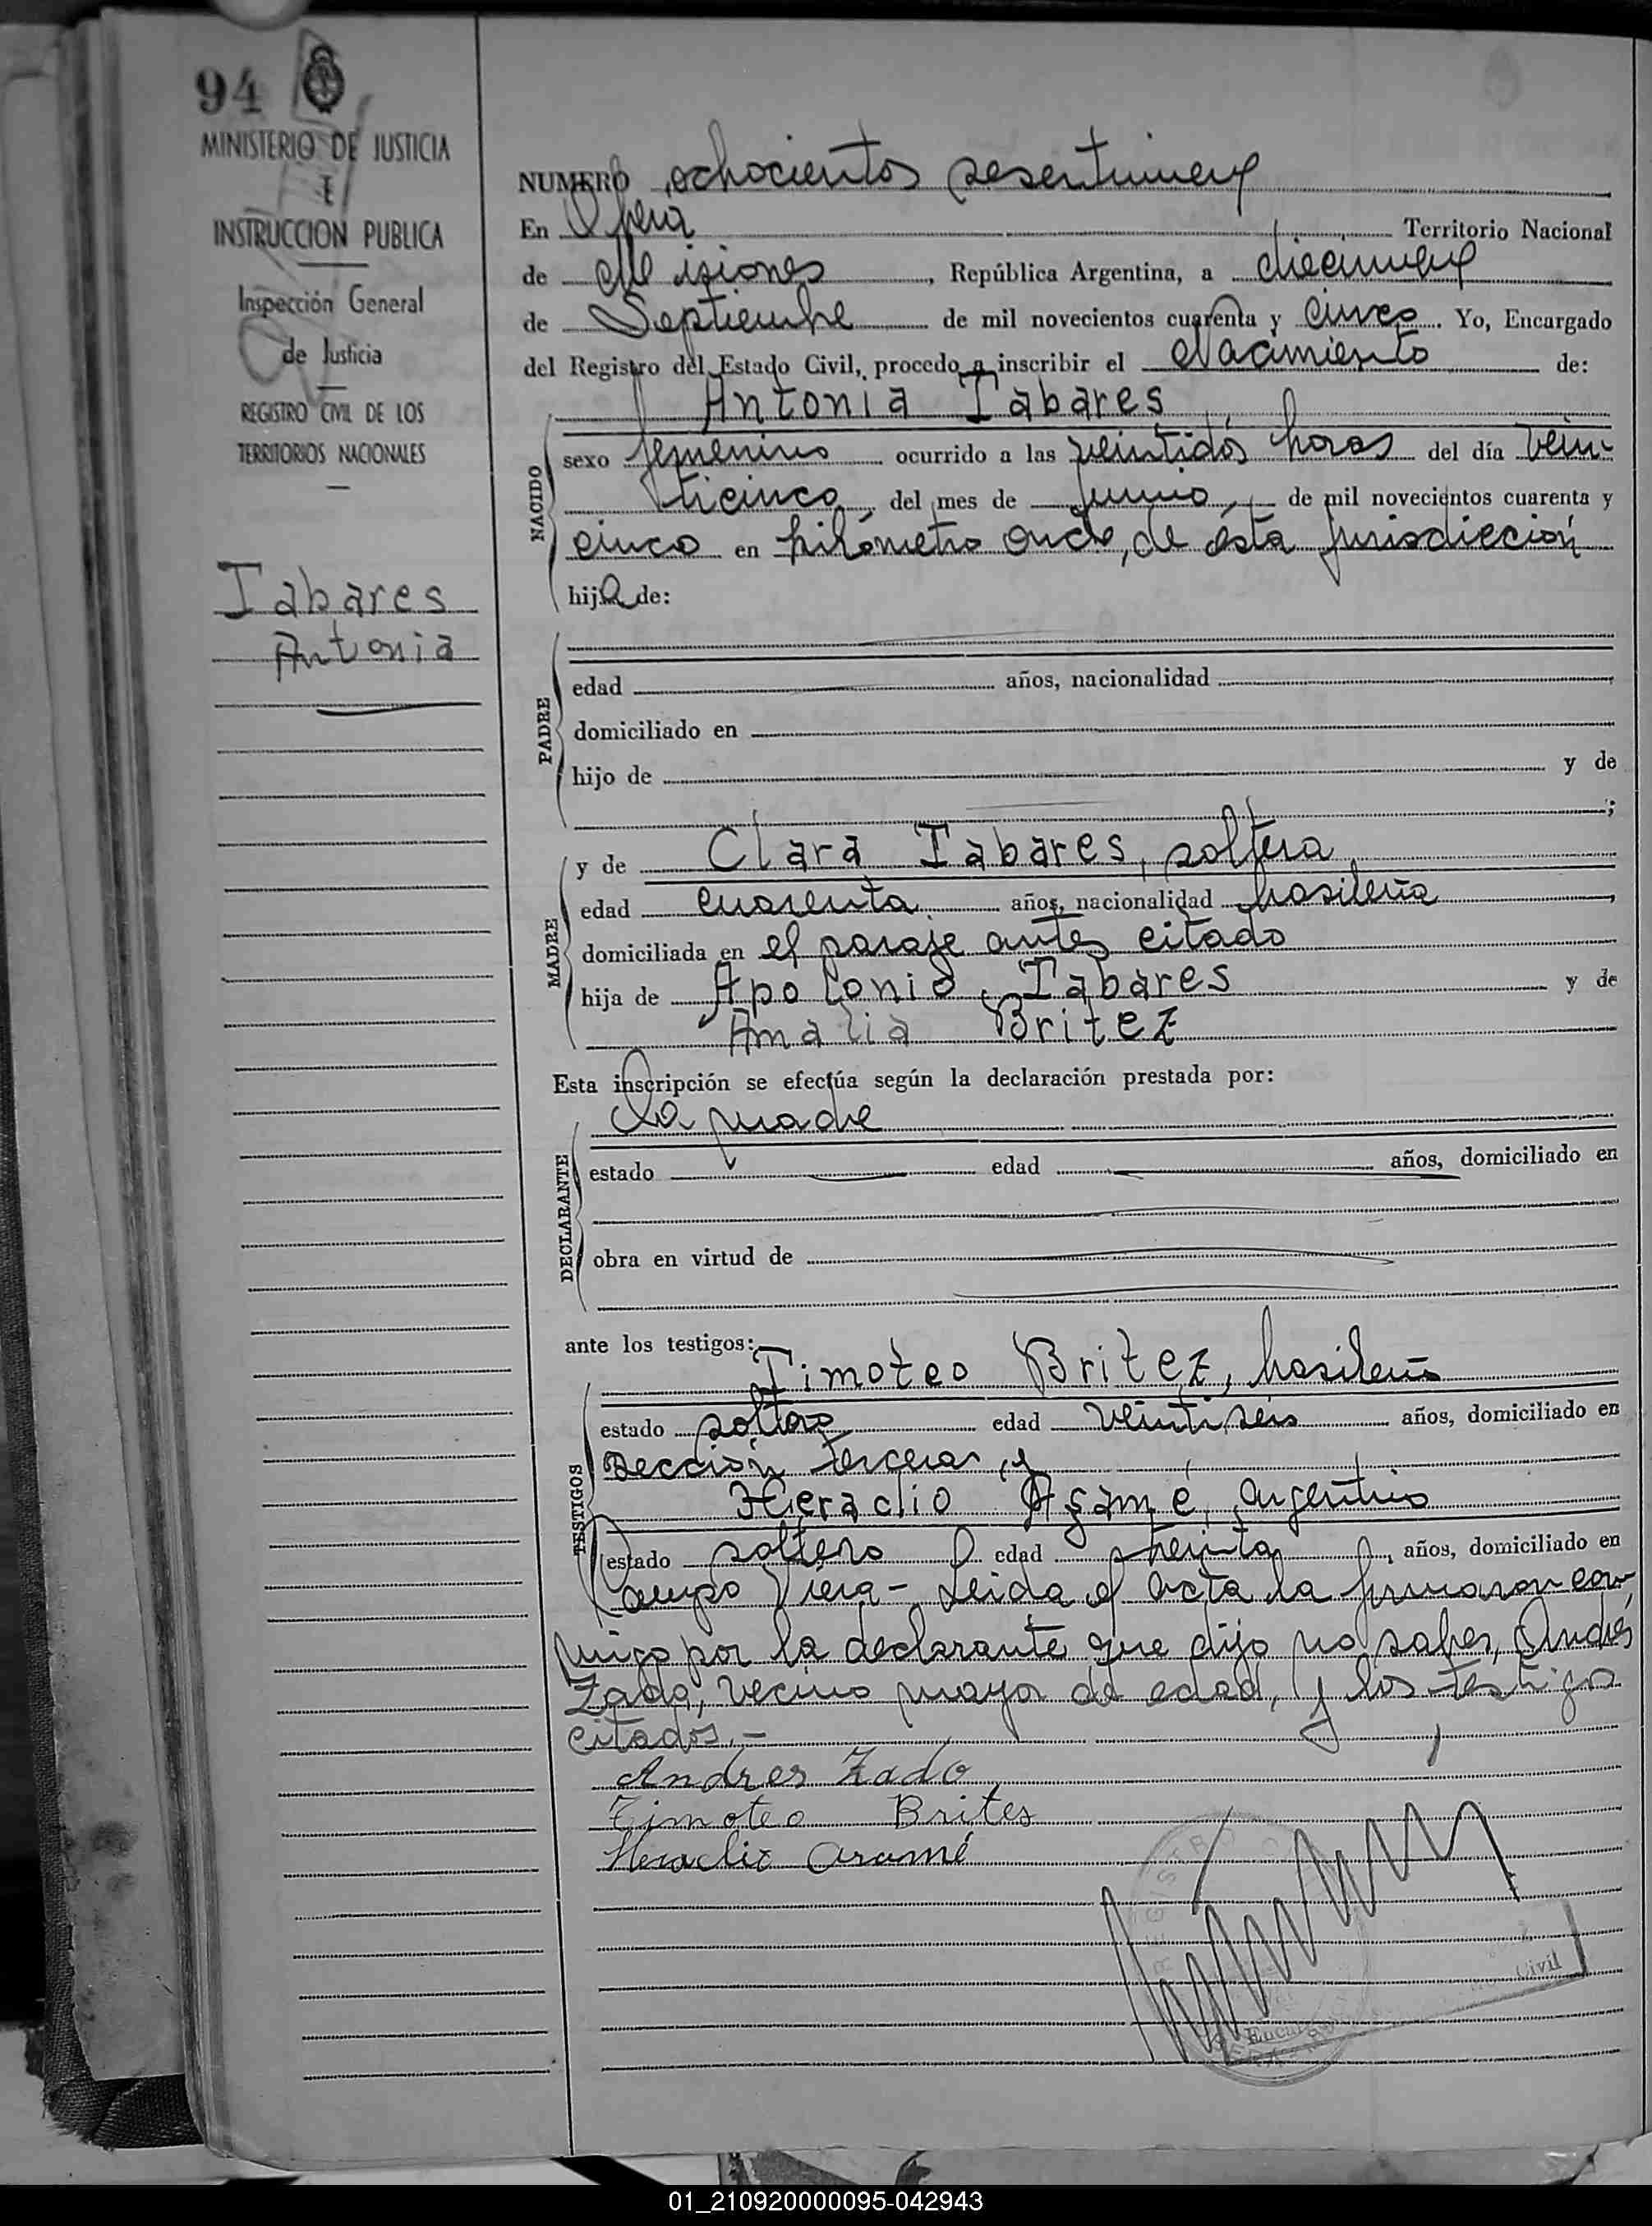 94
MINISTERIO DE JUSTICIA
E
INSTRUCCION PUBLICA
Inspección General
de Justicia
REGISTRO CIVIL DE LOS
TERRITORIOS NACIONALES
Tabares
Antonia
NUMERO ochocientos sesentinueve
En Oberá Territorio Nacional
de Misiones, República Argentina, a diecinueve
de Septiembre de mil novecientos cuarenta y cinco. Yo, Encargado
del Registro del Estado Civil, procedo a inscribir el Nacimiento de:
Antonia Tabares
NACIDO
sexo femenino ocurrido a las veintidós horas del día vein-
ticinco del mes de Junio de mil novecientos cuarenta y
cinco en kilómetro once, de ésta jurisdicción
hija de:
PADRE
edad años, nacionalidad
domiciliado en
hijo de y de
;
MADRE
y de Clara Tabares, soltera
edad cuarenta años, nacionalidad brasileña
domiciliada en el paraje antes citado
hija de Apolonio Tabares y de
Amalia Britez
Esta inscripción se efectúa según la declaración prestada por:
La madre
DECLARANTE
estado edad años, domiciliado en
obra en virtud de
ante los testigos:
Timoteo Britez, brasileño
TESTIGOS
estado soltero edad veintiseis años, domiciliado en
Sección tercera, y
Heraclio Aramé, argentino
estado soltero edad treinta, años, domiciliado en
Campo Viera - Leida el acta la firmaron con-
migo por la declarante que dijo no saber, Andrés
Zado, vecino mayor de edad, y los testigos
citados.-
Andres Zadó
Timoteo Brites
Heraclio Aramé
REGISTRO
Civil
01_210920000095-042943